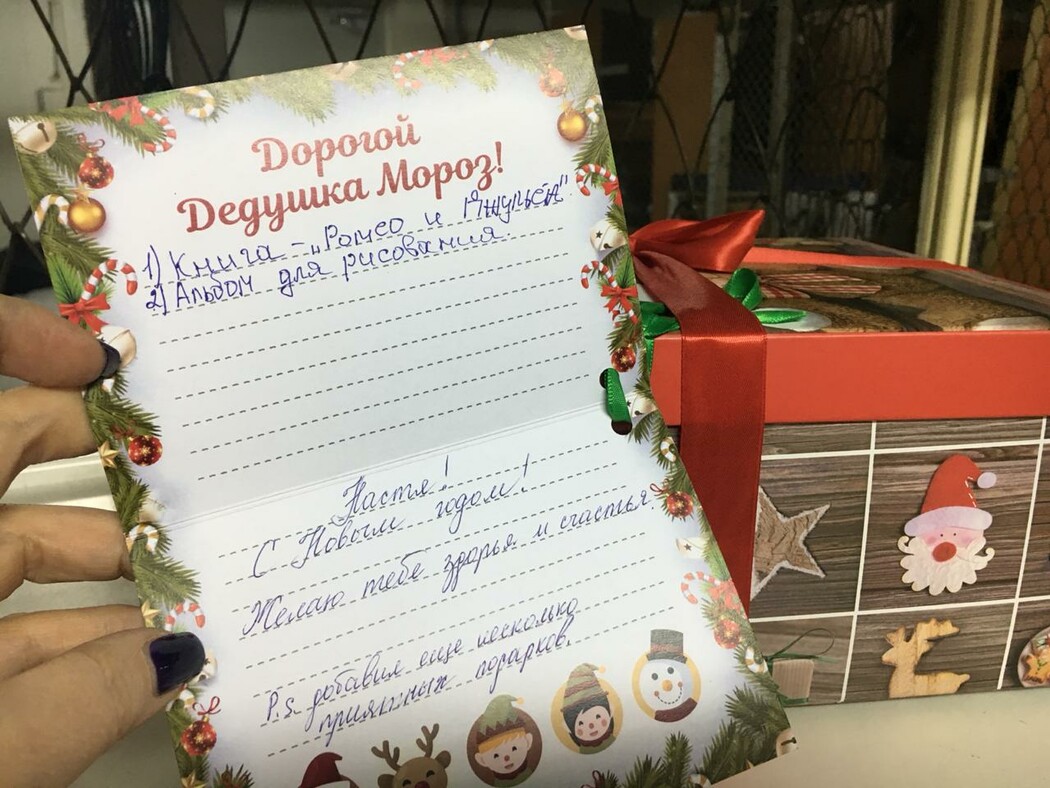 Дорогой
Дедушка Мороз!
1) Книга - „Ромео и Джульета"
2) Альбом для рисования
Настя!
С Новым годом!
Желаю тебе здорья и счастья.
P.s. добавил еще несколько
приятных подарков.